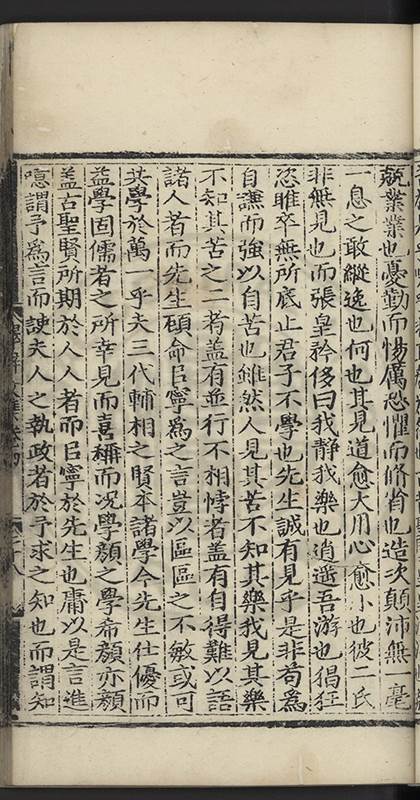 兢業業也憂勤而惕厲恐懼而脩省也造次顛沛無一毫
一息之敢縱逸也何也其見道愈大用心愈小也彼二氏
非無見也而張皇矜侈曰我靜我樂也逍遙吾游也猖狂
恣睢卒無所底止君子不學也先生誠有見乎是非苟為
自謙而強以自苦也雖然人見其苦不知其樂我見其樂
不知其苦之二者盖有並行不相悖者盖有自得難以語
諸人者而先生顧命臣寧為之言豈以區區之不敏或可
共學於萬一乎夫三代輔相之賢本諸學今先生仕優而
益學固儒者之所幸見而喜稱而况學顏之學希顏亦顏
盖古聖賢所期於人人者而臣寧於先生也庸以是言進
噫謂予為言而諛夫人之執政者於予求之知也而謂知